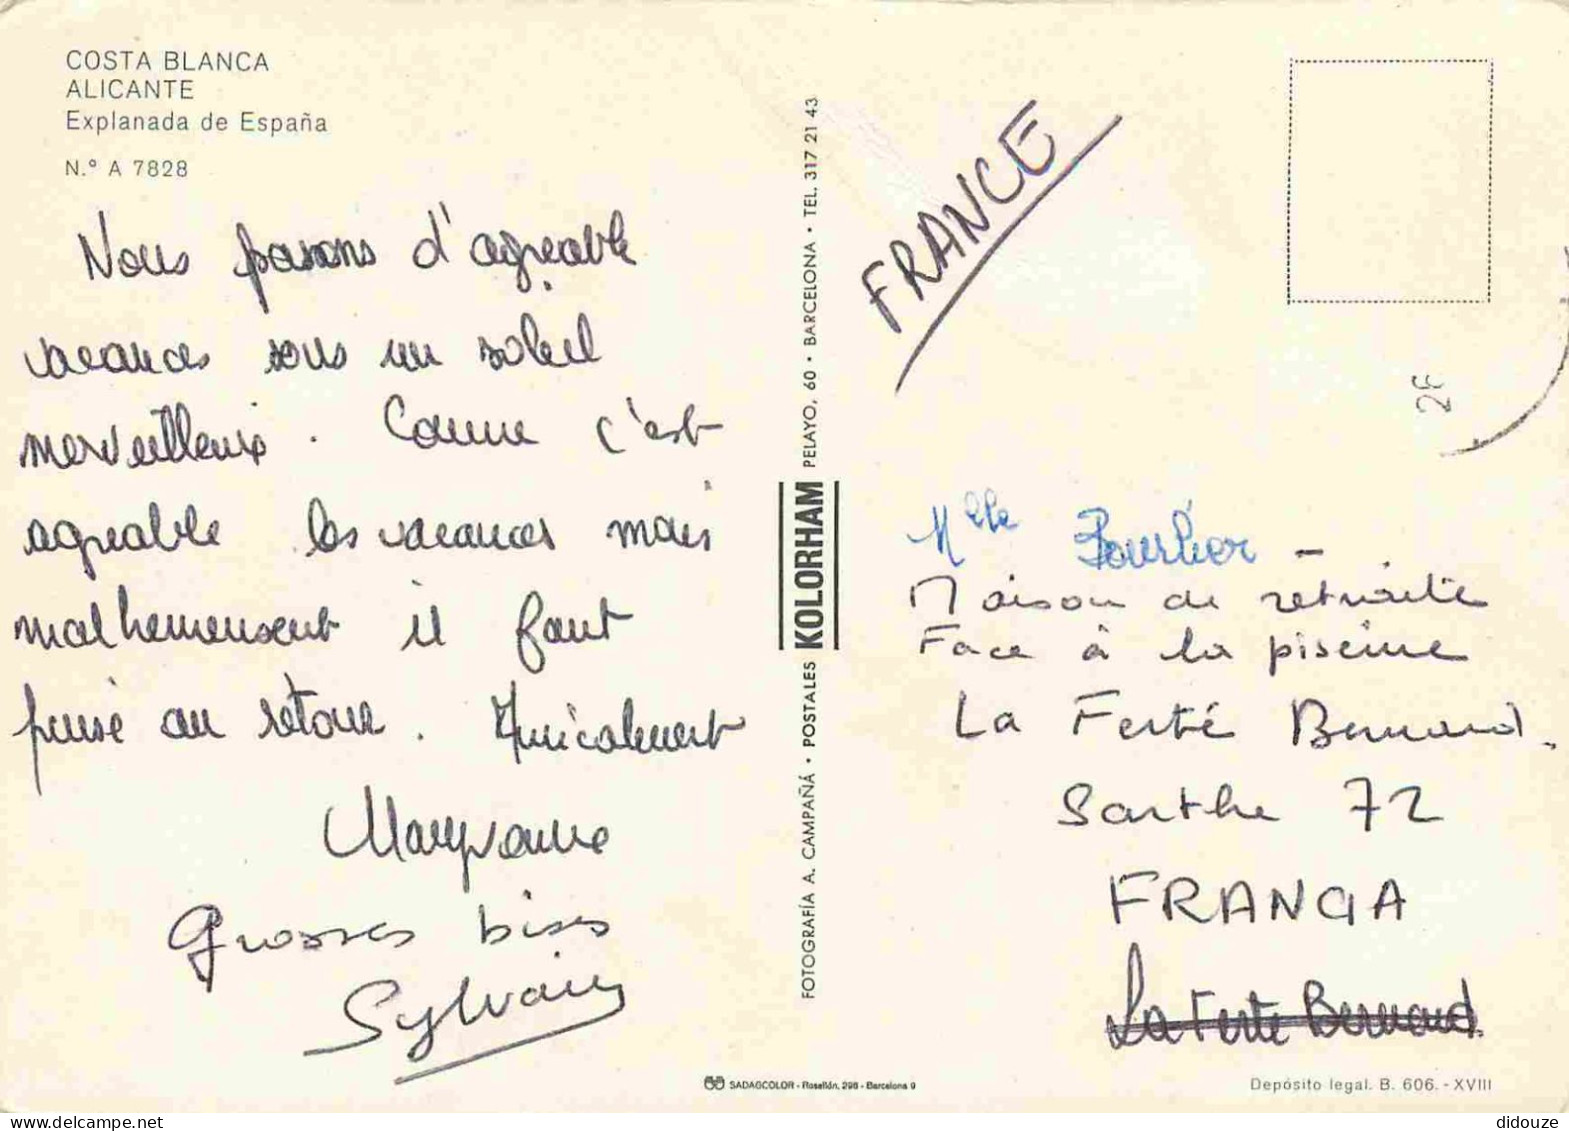 COSTA BLANCA
ALICANTE
Explanada de España
N.º A 7828
Nous passons d'agréable
vacances sous un soleil
merveilleux. Comme c'est
agréable les vacances mais
malheureusement il faut
pensé au retour. Amicalement
Maryvonne
Grosses bises
Sylvain
FOTOGRAFÍA A. CAMPAÑÁ • POSTALES KOLORHAM PELAYO, 60 • BARCELONA • TEL. 317 21 43
FRANCE
26
Melle Bourlier -
Maison de retraite
Face à la piscine
La Ferté Bernard.
Sarthe 72
FRANCIA
La Ferte Bernard.
SADAGCOLOR - Rosellón, 298 - Barcelona 9
Depósito legal. B. 606. - XVIII
didouze